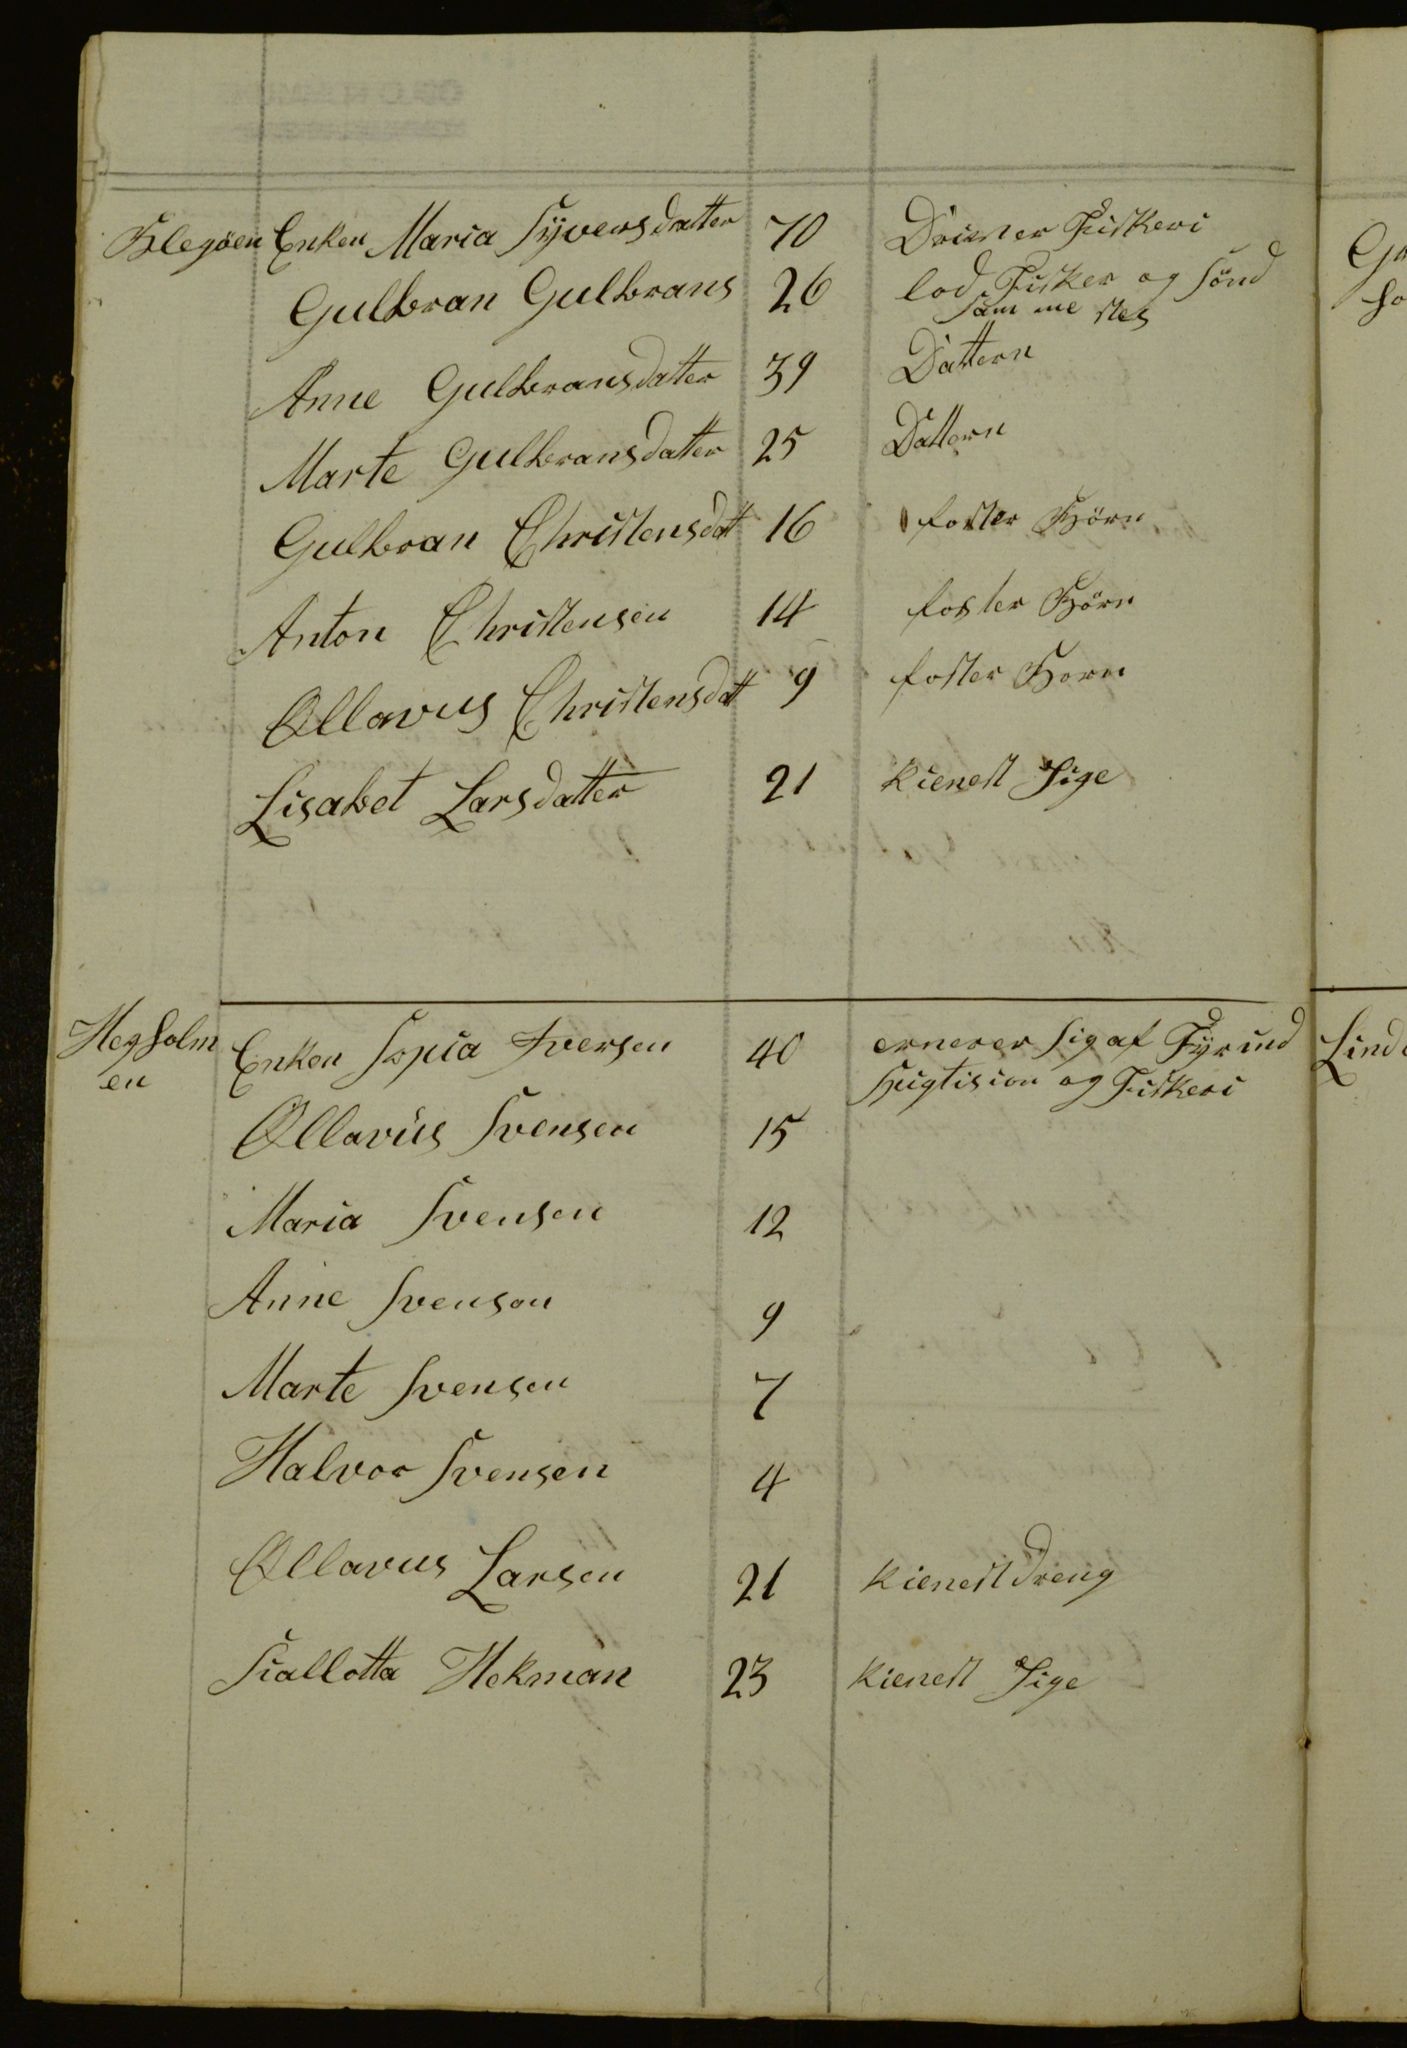 Blegøen Enken Maria Syversdatter 70 Driver Fiskeri
Gulbran Gulbrans 26 lod Fisker og Sønd
Sam me steds
Anne Gulbransdatter 39 Dattern
Marte Gulbransdatter 25 Dattern
Gulbran Christensdatt 16 foster Børn
Anton Christensen 14 foster Børn
Ollavus Christensdatt 9 foster Born
Lisabet Larsdatter 21 kienest Pige
Hegholm
en
Enken Sopia Iversen 40 ernerer sig af Fyrind
og Fiskeri
Ollavus Svensen 15
Maria Svensen 12
Anne Svenson 9
Marte Svensen 7
Halvor Svensen 4
Ollavus Larsen 21 kienest dreng
Siallotta Hekman 23 kienest Pige
Lind